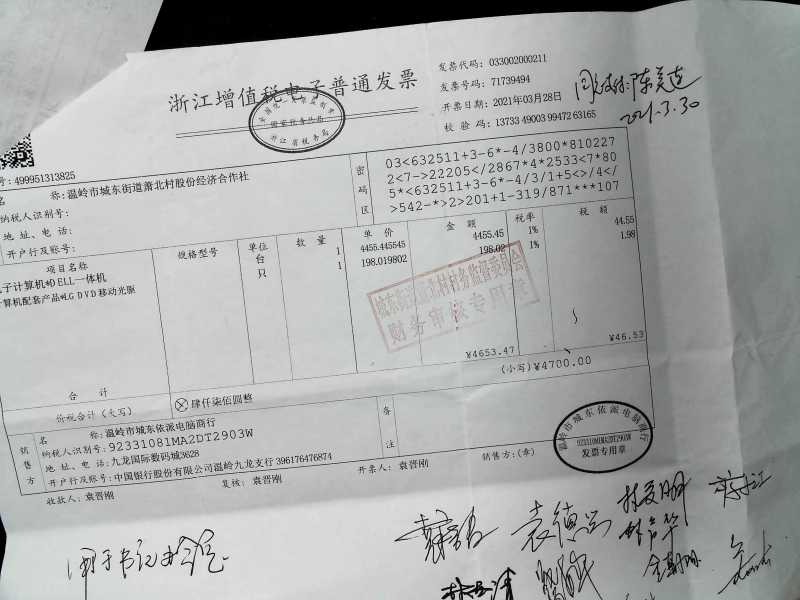 浙江增值税电子普通发票
发票代码: 033002000211
发票号码: 71739494
开票日期: 2021年03月28日
校 验 码: 13733 49003 99472 63165
2021.3.30
号: 499951313825
名 称: 温岭市城东街道箫北村股份经济合作社
纳税人识别号:
地 址、电 话:
开户行及账号:
密码区
03<632511+3-6*-4/3800*810227
2<7->22205</2867*4*2533<7*80
5*<632511+3-6*-4/3/1+5<>/4</
>542-*>2>201+1-319/871***107
项目名称 规格型号 单位 数 量 单 价 金 额 税率 税 额
子计算机*DELL一体机 台 1 4455.445545 4455.45 1% 44.55
计算机配套产品*LG DVD移动光驱 只 1 198.019802 198.02 1% 1.98
城东街道箫北村村务监督委员会
财务审核专用章
合 计 ¥4653.47 ¥46.53
价税合计 (大写) ⊗肆仟柒佰圆整 (小写) ¥4700.00
销售方
名 称: 温岭市城东依派电脑商行
纳税人识别号: 92331081MA2DT2903W
地 址、电 话: 九龙国际数码城3628
开户行及账号: 中国银行股份有限公司温岭九龙支行 396176476874
备注
收款人: 袁晋刚 复核: 袁晋刚 开票人: 袁晋刚 销售方: (章)
温岭市城东依派电脑商行
92331081MA2DT2903W
发票专用章